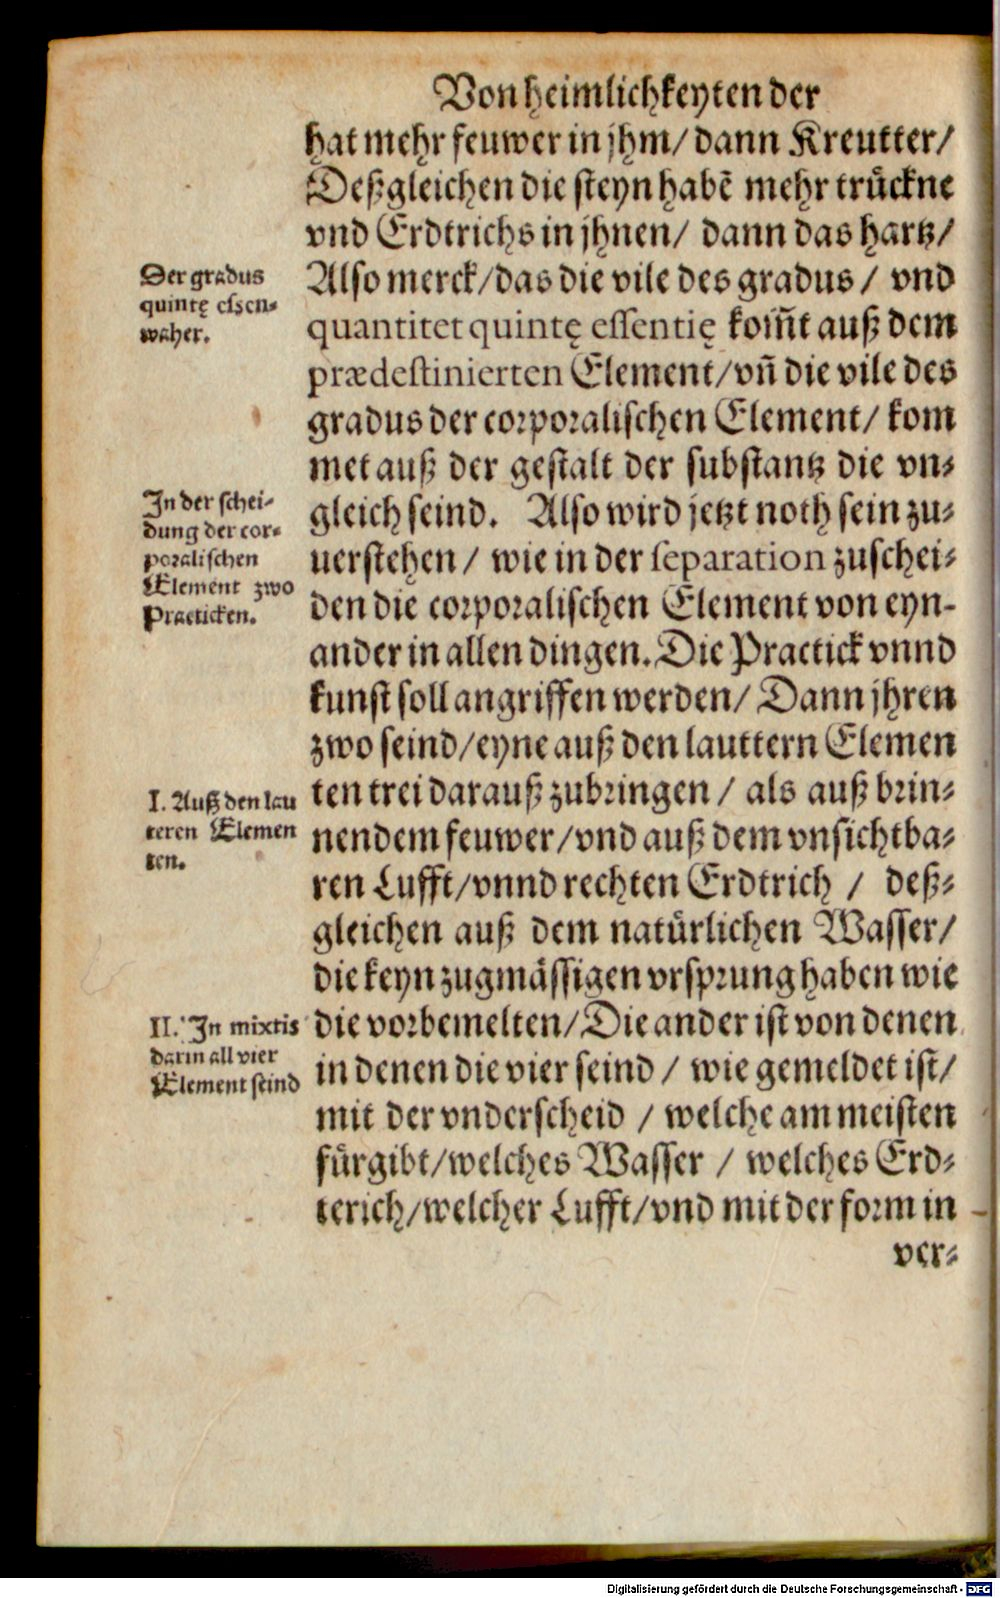 Von heimlichkeyten der
hat mehr feuwer in jhm/ dann Kreutter/
Deßgleichen die steyn habē mehr trůckne
vnd Erdtrichs in jhnen/ dann das hartz/
Also merck/das die vile des gradus/ vnd
quantitet quintę essentię kom̃t auß dem
prædestinierten Element/vñ die vile des
gradus der corporalischen Element/ kom
met auß der gestalt der substantz die vn-
gleich seind. Also wird jetzt noth sein zu-
uerstehen/ wie in der separation zuschei-
den die corporalischen Element von eyn-
ander in allen dingen. Die Practick vnnd
kunst soll angriffen werden/ Dann jhren
zwo seind/eyne auß den lauttern Elemen
ten trei darauß zubringen/ als auß brin-
nendem feuwer/vnd auß dem vnsichtba-
ren Lufft/vnnd rechten Erdtrich/ deß-
gleichen auß dem natůrlichen Wasser/
die keyn zugmåssigen vrsprung haben wie
die vorbemelten/Die ander ist von denen
in denen die vier seind/ wie gemeldet ist/
mit der vnderscheid/ welche am meisten
fůrgibt/welches Wasser/ welches Erd-
terich/welcher Lufft/vnd mit der form in
ver-
Der gradus
quintę essen-
waher.
In der schei-
dung der cor-
poralischen
Element zwo
Practicken.
I. Auß den lau
teren Elemen
ten.
II. In mixtis
darin all vier
Element seind
Digitalisierung gefördert durch die Deutsche Forschungsgemeinschaft - DFG